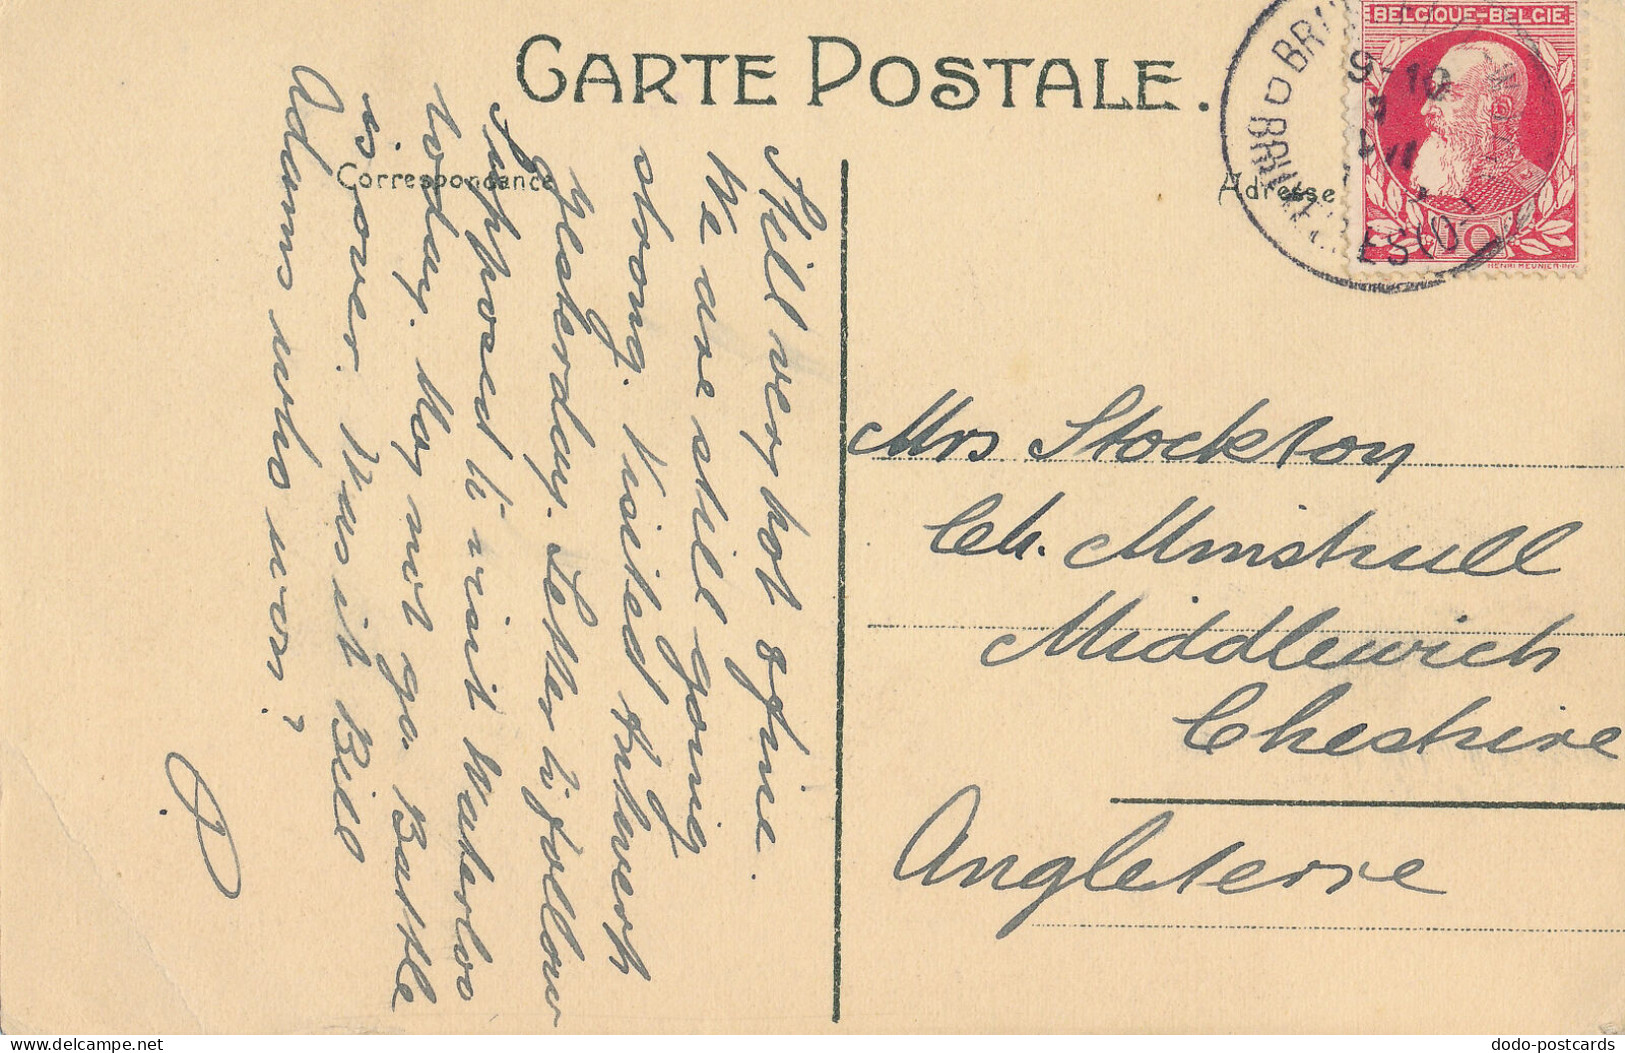 CARTE POSTALE.
Correspondance
Adresse
BELGIQUE-BELGIE
HENRI MEUNIER·INV
9-10
ES(O
Still very hot & fine.
We are still going
strong. Visited Antwerp
yesterday. Letter to follow
Supposed to visit Waterloo
today. May not go. Battle
is over. Was it Bill
Adams who won?
Mrs Stockton
Ch. Minshull
Middlewich
Cheshire
Angleterre
dodo-postcards